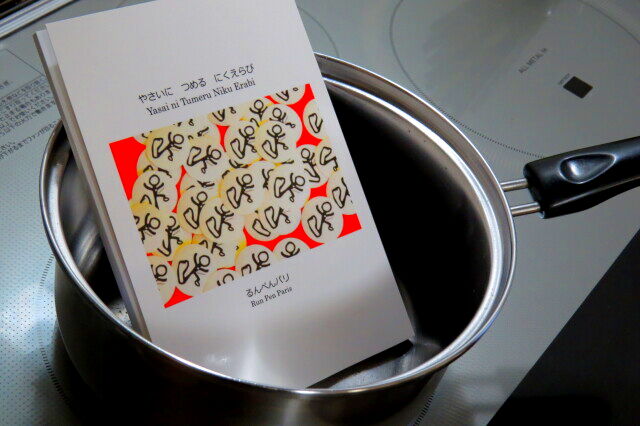 やさいに つめる にくえらび
Yasai ni Tumeru Niku Erabi
るんぺんパリ
Run Pen Paris
ALL METAL IH